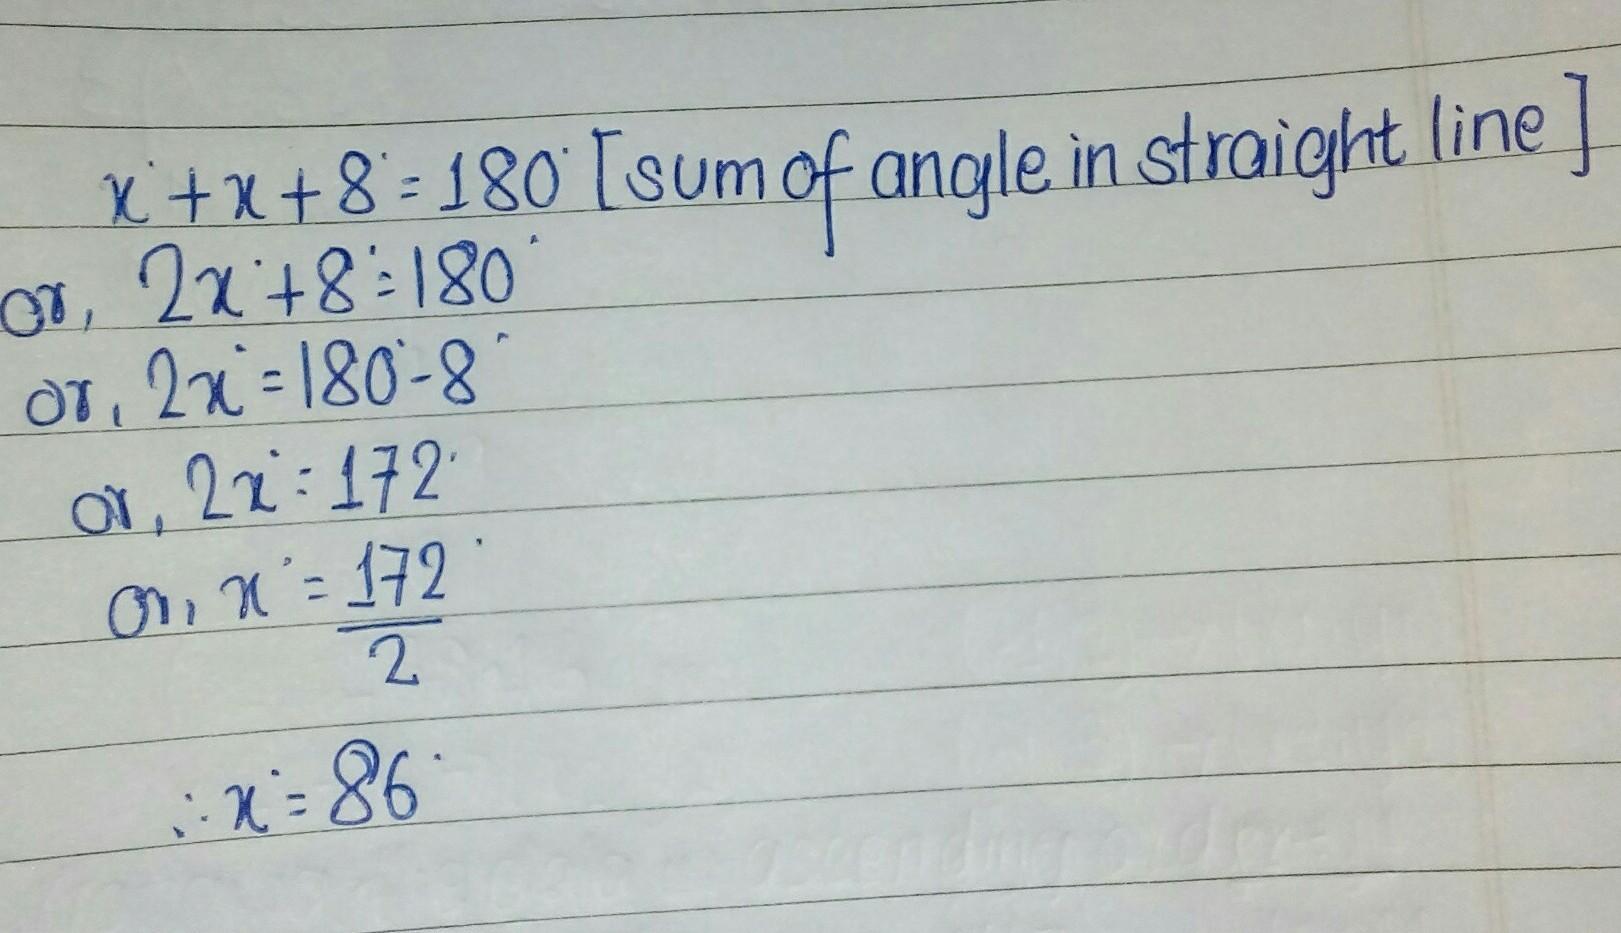 x° + x + 8° = 180° [sum of angle in straight line]
or, 2x° + 8° = 180°
or, 2x° = 180° - 8°
or, 2x° = 172°
or, x° = 172°
2
∴ x° = 86°